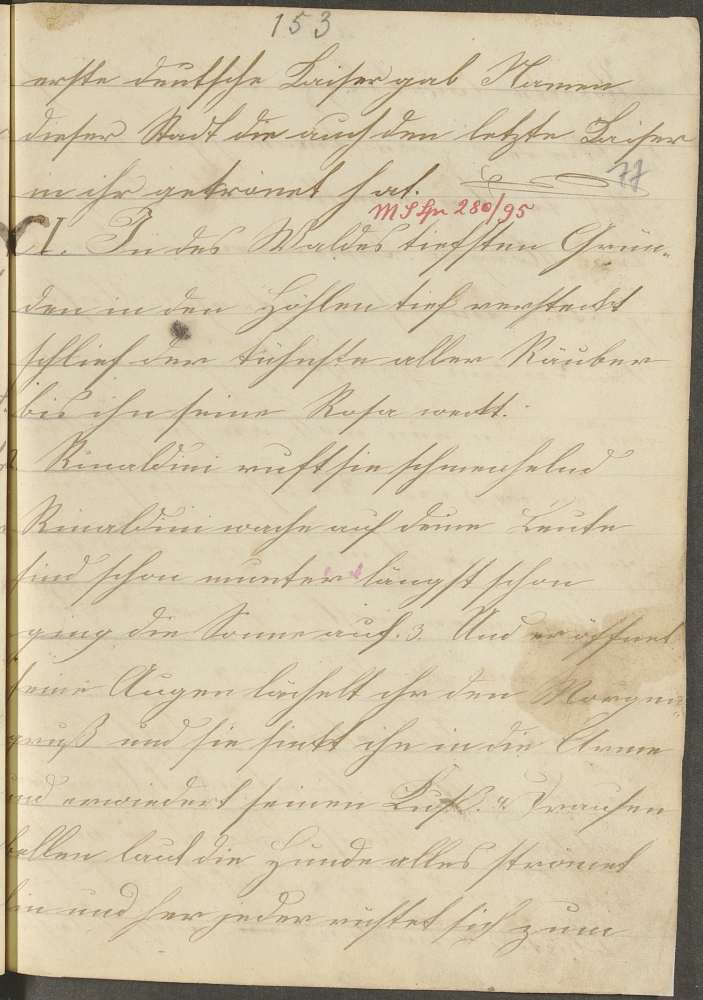 153
erste deutsche Kaiser gab Namen
dieser Stadt die auch den letzte Kaiser
in ihr getrönet hat.
77
MS Hn 280/95
CI. In des Waldes tiefsten Grün-
den in den Höhlen tief versteckt
schlief der kühnste aller Räuber
bis ihn seine Rosa weckt.
2 Rinaldini ruft sie schmeichelnd
Rinaldini wache auf deine Leute
sind schon munter längst schon
ging die Sonne auf. 3. Und er öffnet
seine Augen lächelt ihr den Morgen-
gruß und sie sinkt ihn in die Arme
und erwiedert seinen Kuß. 4 Draußen
bellen laut die Hunde alles strömet
hin und her jeder rüstet sich zum